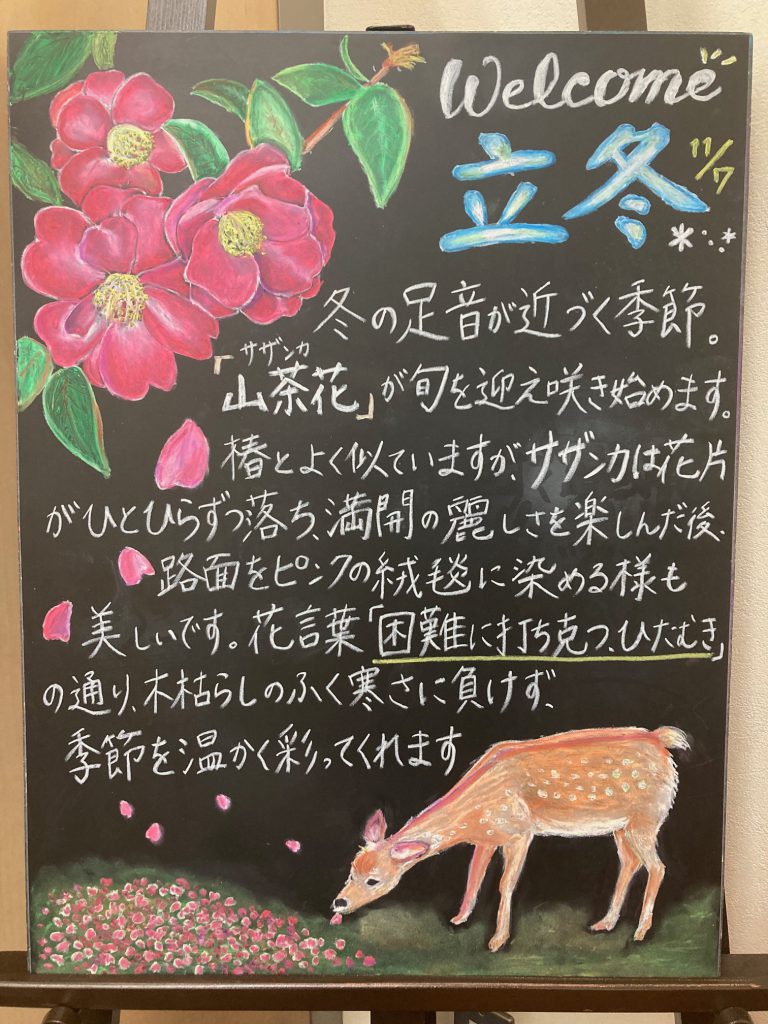 Welcome
立冬 11/7
冬の足音が近づく季節。
サザンカ
「山茶花」が旬を迎え咲き始めます。
椿とよく似ていますが、サザンカは花片
がひとひらずつ落ち、満開の麗しさを楽しんだ後、
路面をピンクの絨毯に染める様も
美しいです。花言葉「困難に打ち克つ、ひたむき」
の通り、木枯らしのふく寒さに負けず、
季節を温かく彩ってくれます